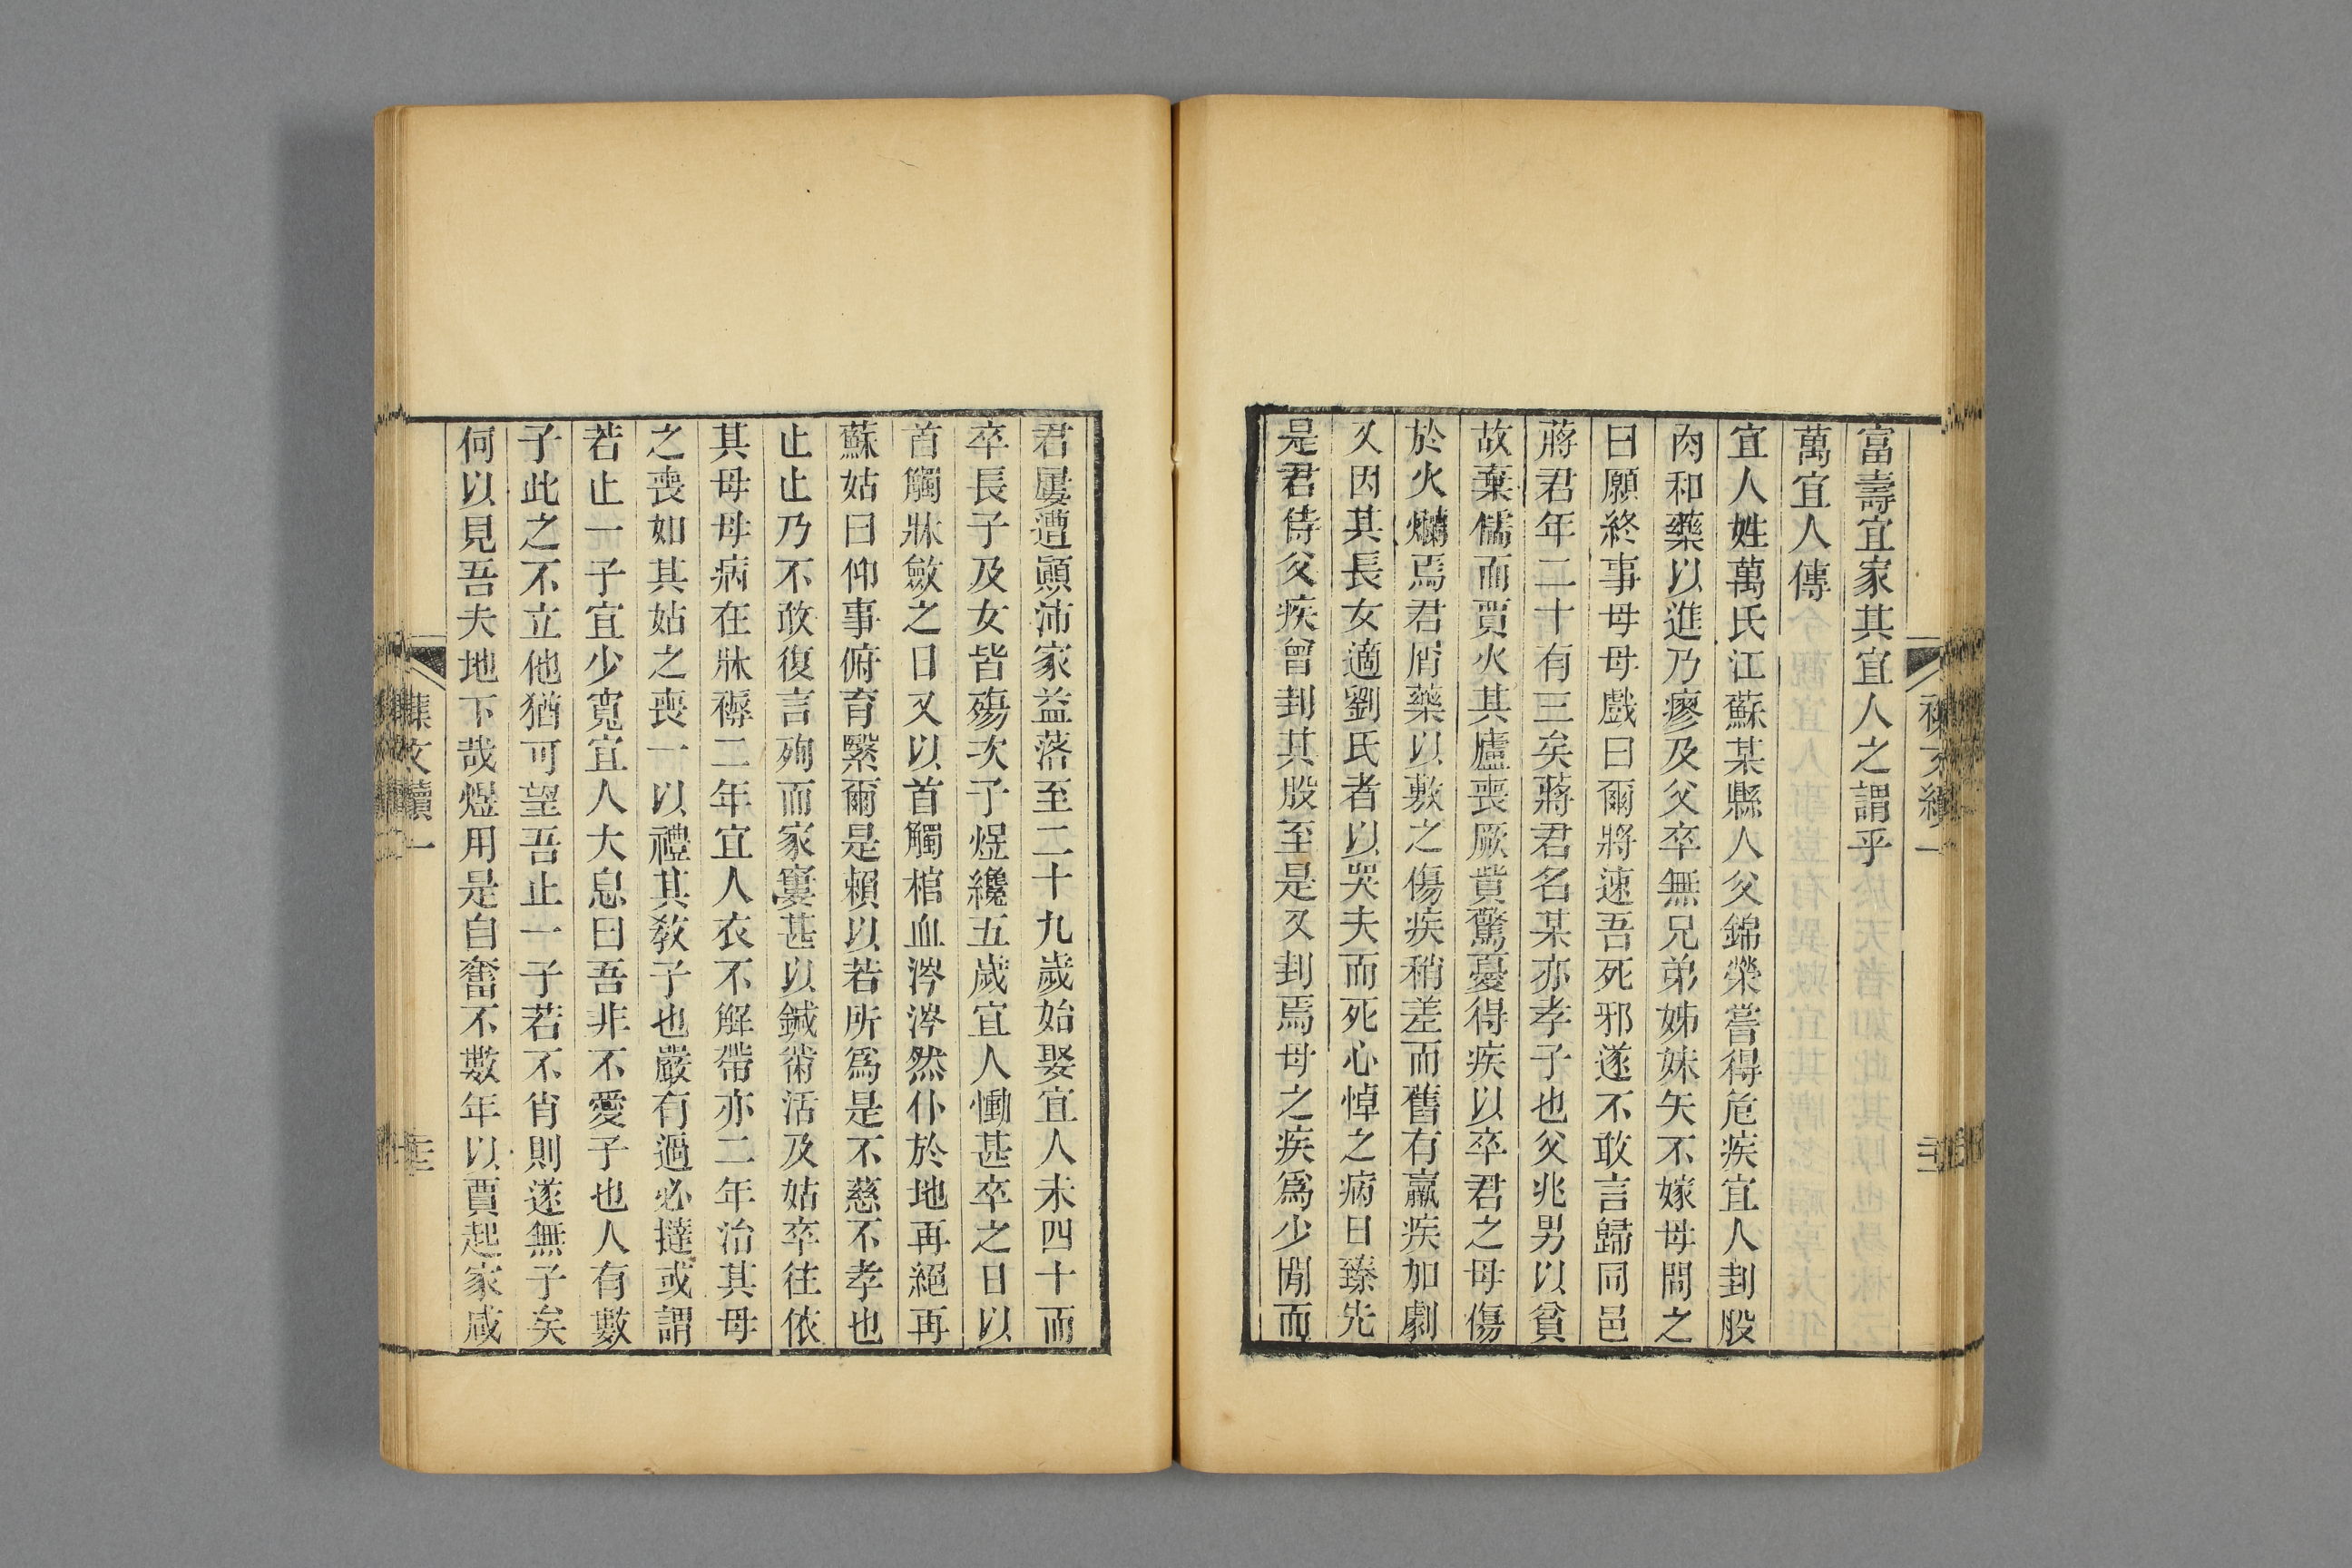 富壽宜家其宜人之謂乎
萬宜人傳
宜人姓萬氏江蘇某縣人父錦榮嘗得危疾宜人刲股
肉和藥以進乃瘳及父卒無兄弟姊妹矢不嫁母問之
曰願終事母母戲曰爾將速吾死邪遂不敢言歸同邑
蔣君年二十有三矣蔣君名某亦孝子也父兆男以貧
故棄儒而賈火其廬喪厥貲驚憂得疾以卒君之母傷
於火爛焉君屑藥以敷之傷疾稍差而舊有羸疾加劇
又因其長女適劉氏者以哭夫而死心悼之病日臻先
是君侍父疾曾刲其股至是又刲焉母之疾爲少閒而
君屢遭顚沛家益落至二十九歲始娶宜人未四十而
卒長子及女皆殤次子煜纔五歲宜人慟甚卒之日以
首觸牀斂之日又以首觸棺血涔涔然仆於地再絕再
蘇姑曰仰事俯育繄爾是賴以若所爲是不慈不孝也
止止乃不敢復言殉而家窶甚以鍼黹活及姑卒往依
其母母病在牀褥二年宜人衣不解帶亦二年治其母
之喪如其姑之喪一以禮其敎子也嚴有過必撻或謂
若止一子宜少寬宜人大息曰吾非不愛子也人有數
子此之不立他猶可望吾止一子若不肖則遂無子矣
何以見吾夫地下哉煜用是自奮不數年以賈起家咸
文續一